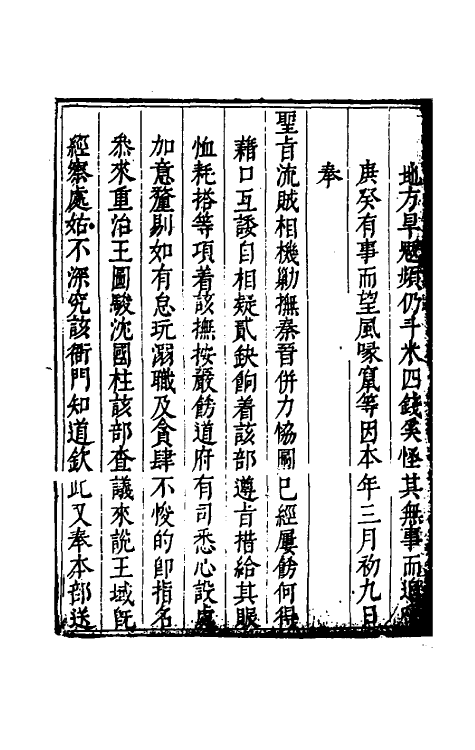 地方旱魃頻仍斗米四錢奚怪其無事而逃
庚癸有事而望風喙竄等因本年三月初九日
奉
聖旨流賊相機勦撫秦晉併力恊圖已經屢飭何得
藉口互諉自相疑貳缺餉着該部遵旨措給其賑
恤耗搭等項着該撫按嚴飭道府有司悉心設處
加意釐剔如有息玩溺職及貪肆不悛的卽指名
叅來重治王國駿沈國柱該部查議來說王域旣
經察處姑不深究該衙門知道欽此又奉本部送